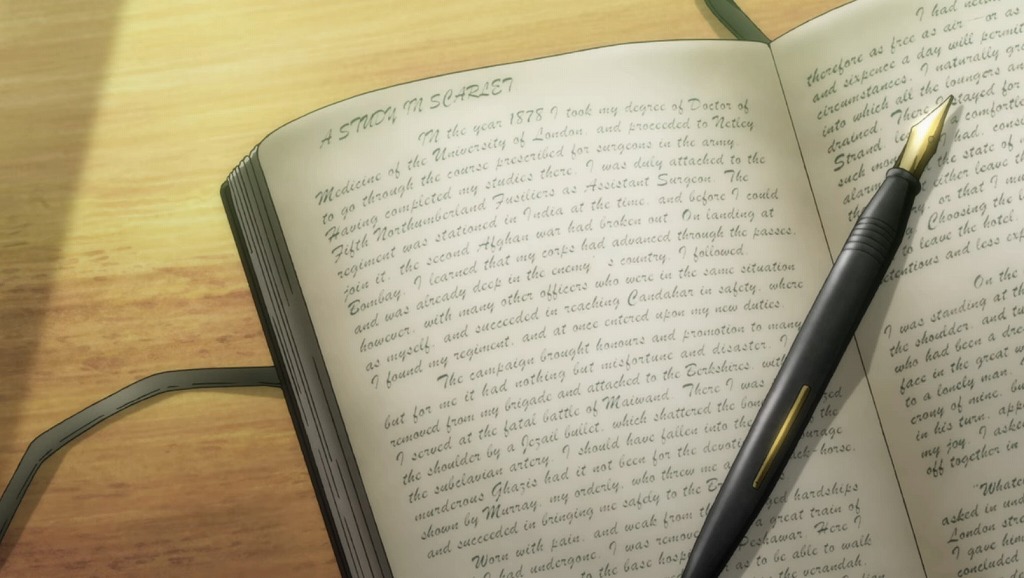 A STUDY IN SCARLET
IN the year 1878 I took my degree of Doctor of
Medicine of the University of London, and proceeded to Netley
to go through the course prescribed for surgeons in the army.
Having completed my studies there, I was duly attached to the
Fifth Northumberland Fusiliers as Assistant Surgeon. The
regiment was stationed in India at the time, and before I could
join it, the second Afghan war had broken out. On landing at
Bombay, I learned that my corps had advanced through the passes,
and was already deep in the enemy's country. I followed,
however, with many other officers who were in the same situation
as myself, and succeeded in reaching Candahar in safety, where
I found my regiment, and at once entered upon my new duties.
The campaign brought honours and promotion to many
but for me it had nothing but misfortune and disaster. I
removed from my brigade and attached to the Berkshires, with
I served at the fatal battle of Maiwand. There I was
the shoulder by a Jezail bullet, which shattered the bone
the subclavian artery. I should have fallen into the
murderous Ghazis had it not been for the devotion courage
shown by Murray, my orderly, who threw me a pack-horse,
and succeeded in bringing me safely to the
Worn with pain, and weak from hardships
I had undergone, I was removed great train of
to the base hospital Peshawar. Here I
as to be able to walk
the verandah,
I had
therefore as free as air—or as
and sixpence a day will permit
circumstances, I naturally
into which all the loungers and
drained. There stayed for
Strand comfortless
such had, cons
alarm the state of
either leave the
or that I
Choosing the
to leave the hotel,
and less exp
On the
I was standing at the
the shoulder, and
who had been a
face in the great
to a lonely man.
crony of mine, but
in his turn,
my joy, I asked
off together in
"Whatever
asked in
London
I gave him
concluded